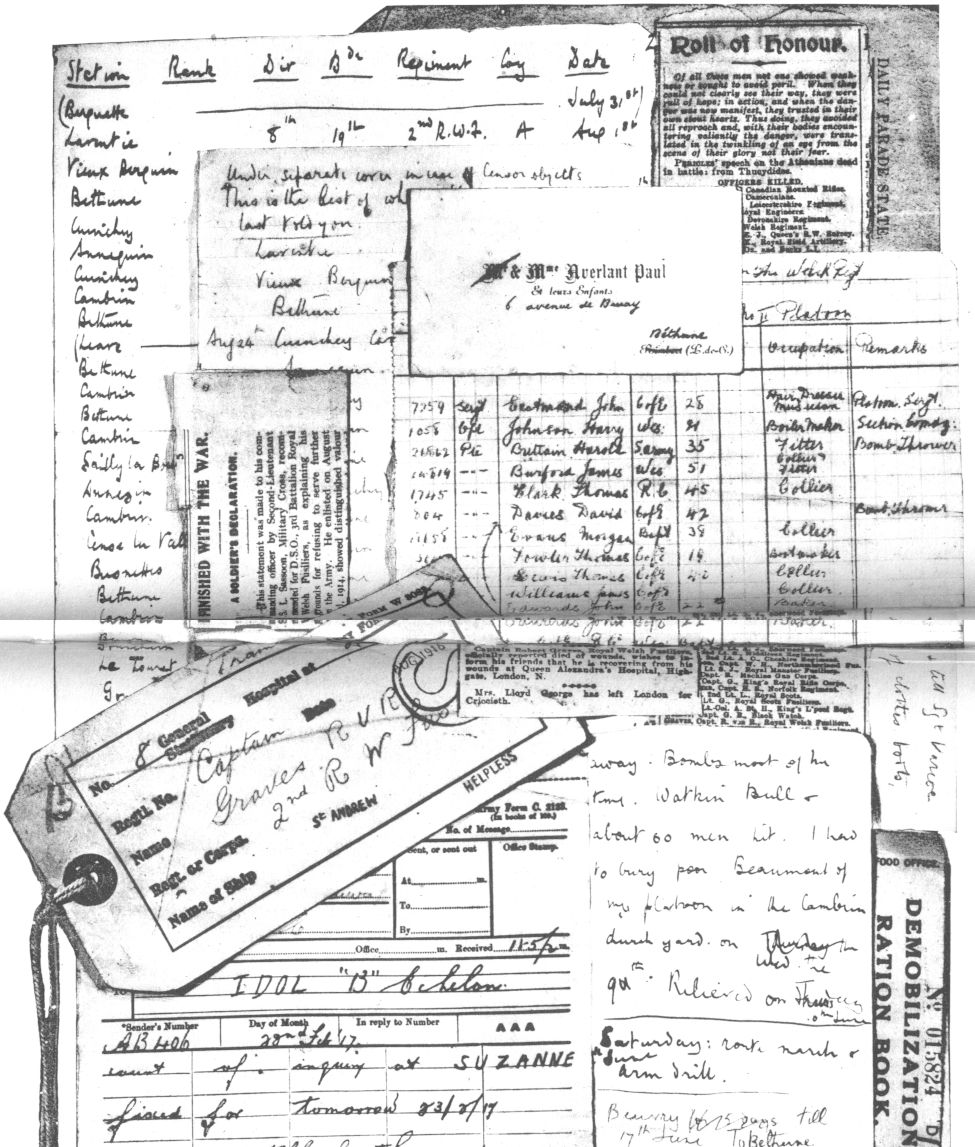 Station Rank Div Bde Regiment Coy Date
(Berguette July 31st)
Laventie 8th 19th 2nd R.W.F. A Aug 1st
Vieux Berquin
Bethune
Cuinchy
Annequin
Cuinchy
Cambrin
Bethune
(Leave
Bethune
Cambrin
Bethune
Cambrin
Sailly la
Annequin
Cambrin.
Bethune
Cambrin
Le Touret
Under separate cover in case of Censor objects
This is the best of
last told you.
Laventie
Vieux Berquin
Bethune
Aug 24th Cuinchy
Roll of Honour.
Of all these men not one showed weak-
ness or sought to avoid peril. When they
could not clearly see their way, they were
full of hope; in action, and when the dan-
ger was now manifest, they trusted in their
own stout hearts. Thus doing, they avoided
all reproach and, with their bodies encoun-
tering valiantly the danger, were trans-
lated in the twinkling of an eye from the
scene of their glory not their fear.
PERICLES' speech on the Athenians dead
in battle: from Thucydides.
OFFICERS KILLED.
Canadian Mounted Rifles.
Cameronians.
Leicestershire Regiment.
Royal Engineers.
Devonshire Regiment.
Welsh Regiment.
E. J., Queen's R.W. Surrey.
Royal Field Artillery.
Ox. and Bucks L.I.
DAILY PARADE STATE
Mr & Mme Averlant Paul
Et leurs Enfants
6 avenue de Bruay
Béthune
(P.-de-C.)
The Welch Regt
Platoon
Occupation Remarks
7259 Sergt Eastmond John C of E 28 Hair Dresser Musician Platoon Sergt.
1058 Cpl Johnson Harry Wes: Boilermaker Section Comdg:
Pte Brittain Harold S.army 35 Fitter Bomb Thrower
Collier
--- Burford James Wes 51 Fitter
1745 --- Clark Thomas R.C 45 Collier
--- Davies David C of E 42 Bomb. Thrower
--- Evans Morgan Bapt 38 Collier
Fowler Thomas C of E 19 Bootmaker
Lewis Thomas C of E Collier
Williams James C of E Collier.
Edwards John C of E 22 Baker
FINISHED WITH THE WAR.
A SOLDIER'S DECLARATION.
This statement was made to his com-
manding officer by Second-Lieutenant
S. L. Sassoon, Military Cross, recom-
mended for D.S.O., 3rd Battalion Royal
Welsh Fusiliers, as explaining his
grounds for refusing to serve further
in the Army. He enlisted on August
1914, showed distinguished valour
Captain Robert Graves, Royal Welsh Fusiliers,
officially reported died of wounds, wishes
form his friends that he is recovering from his
wounds at Queen Alexandra's Hospital, High-
gate, London, N.
Mrs. Lloyd George has left London for
Criccieth.
Capt. W. H., Northumberland Fus.
Royal Munster Fusiliers.
Machine Gun Corps.
Capt. G., King's Royal Rifle Corps.
Capt. H. S., Norfolk Regiment.
2nd Lt. L., Royal Scots.
Lt. G., Royal Scots Fusiliers.
Lt.-Col. A. H., King's L'pool Regt.
Capt. G. B., Black Watch.
Graves, Capt. R. von R., Royal Welsh Fusiliers.
ARMY FORM W
AUG 1916
No. 8 General Stationary Hospital at
Date
Regtl. No. Captain
Name Graves R V R
Regt. or Corps. 2nd R W Fus
Name of Ship St ANDREW
HELPLESS
Army Form C. 2123.
(In books of 100.)
No. of Message
Sent, or sent out Office Stamp.
At m.
To
By
Office m. Received 11.5 m.
To IDOL "B" Echelon.
*Sender's Number Day of Month In reply to Number AAA
AB 406 22nd Feb '17.
count of inquiry at SUZANNE
fixed for tomorrow 23/2/17
away. Bombs most of the
time. Watkin Bull &
about 60 men hit. I had
to bury poor Beaumont of
my platoon in the Cambrin
church yard. on Thursday
Wed. the
9th. Relieved on Thursday
Saturday: route march &
June
arm drill.
Beuvry 15 days till
17th June To Bethune
FOOD OFFICE.
DEMOBILIZATION
RATION BOOK.
No 015824